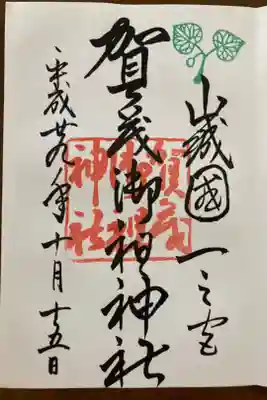 山城國一之宮
賀茂御祖神社
平成廿九年十月十五日
賀茂
御祖
神社